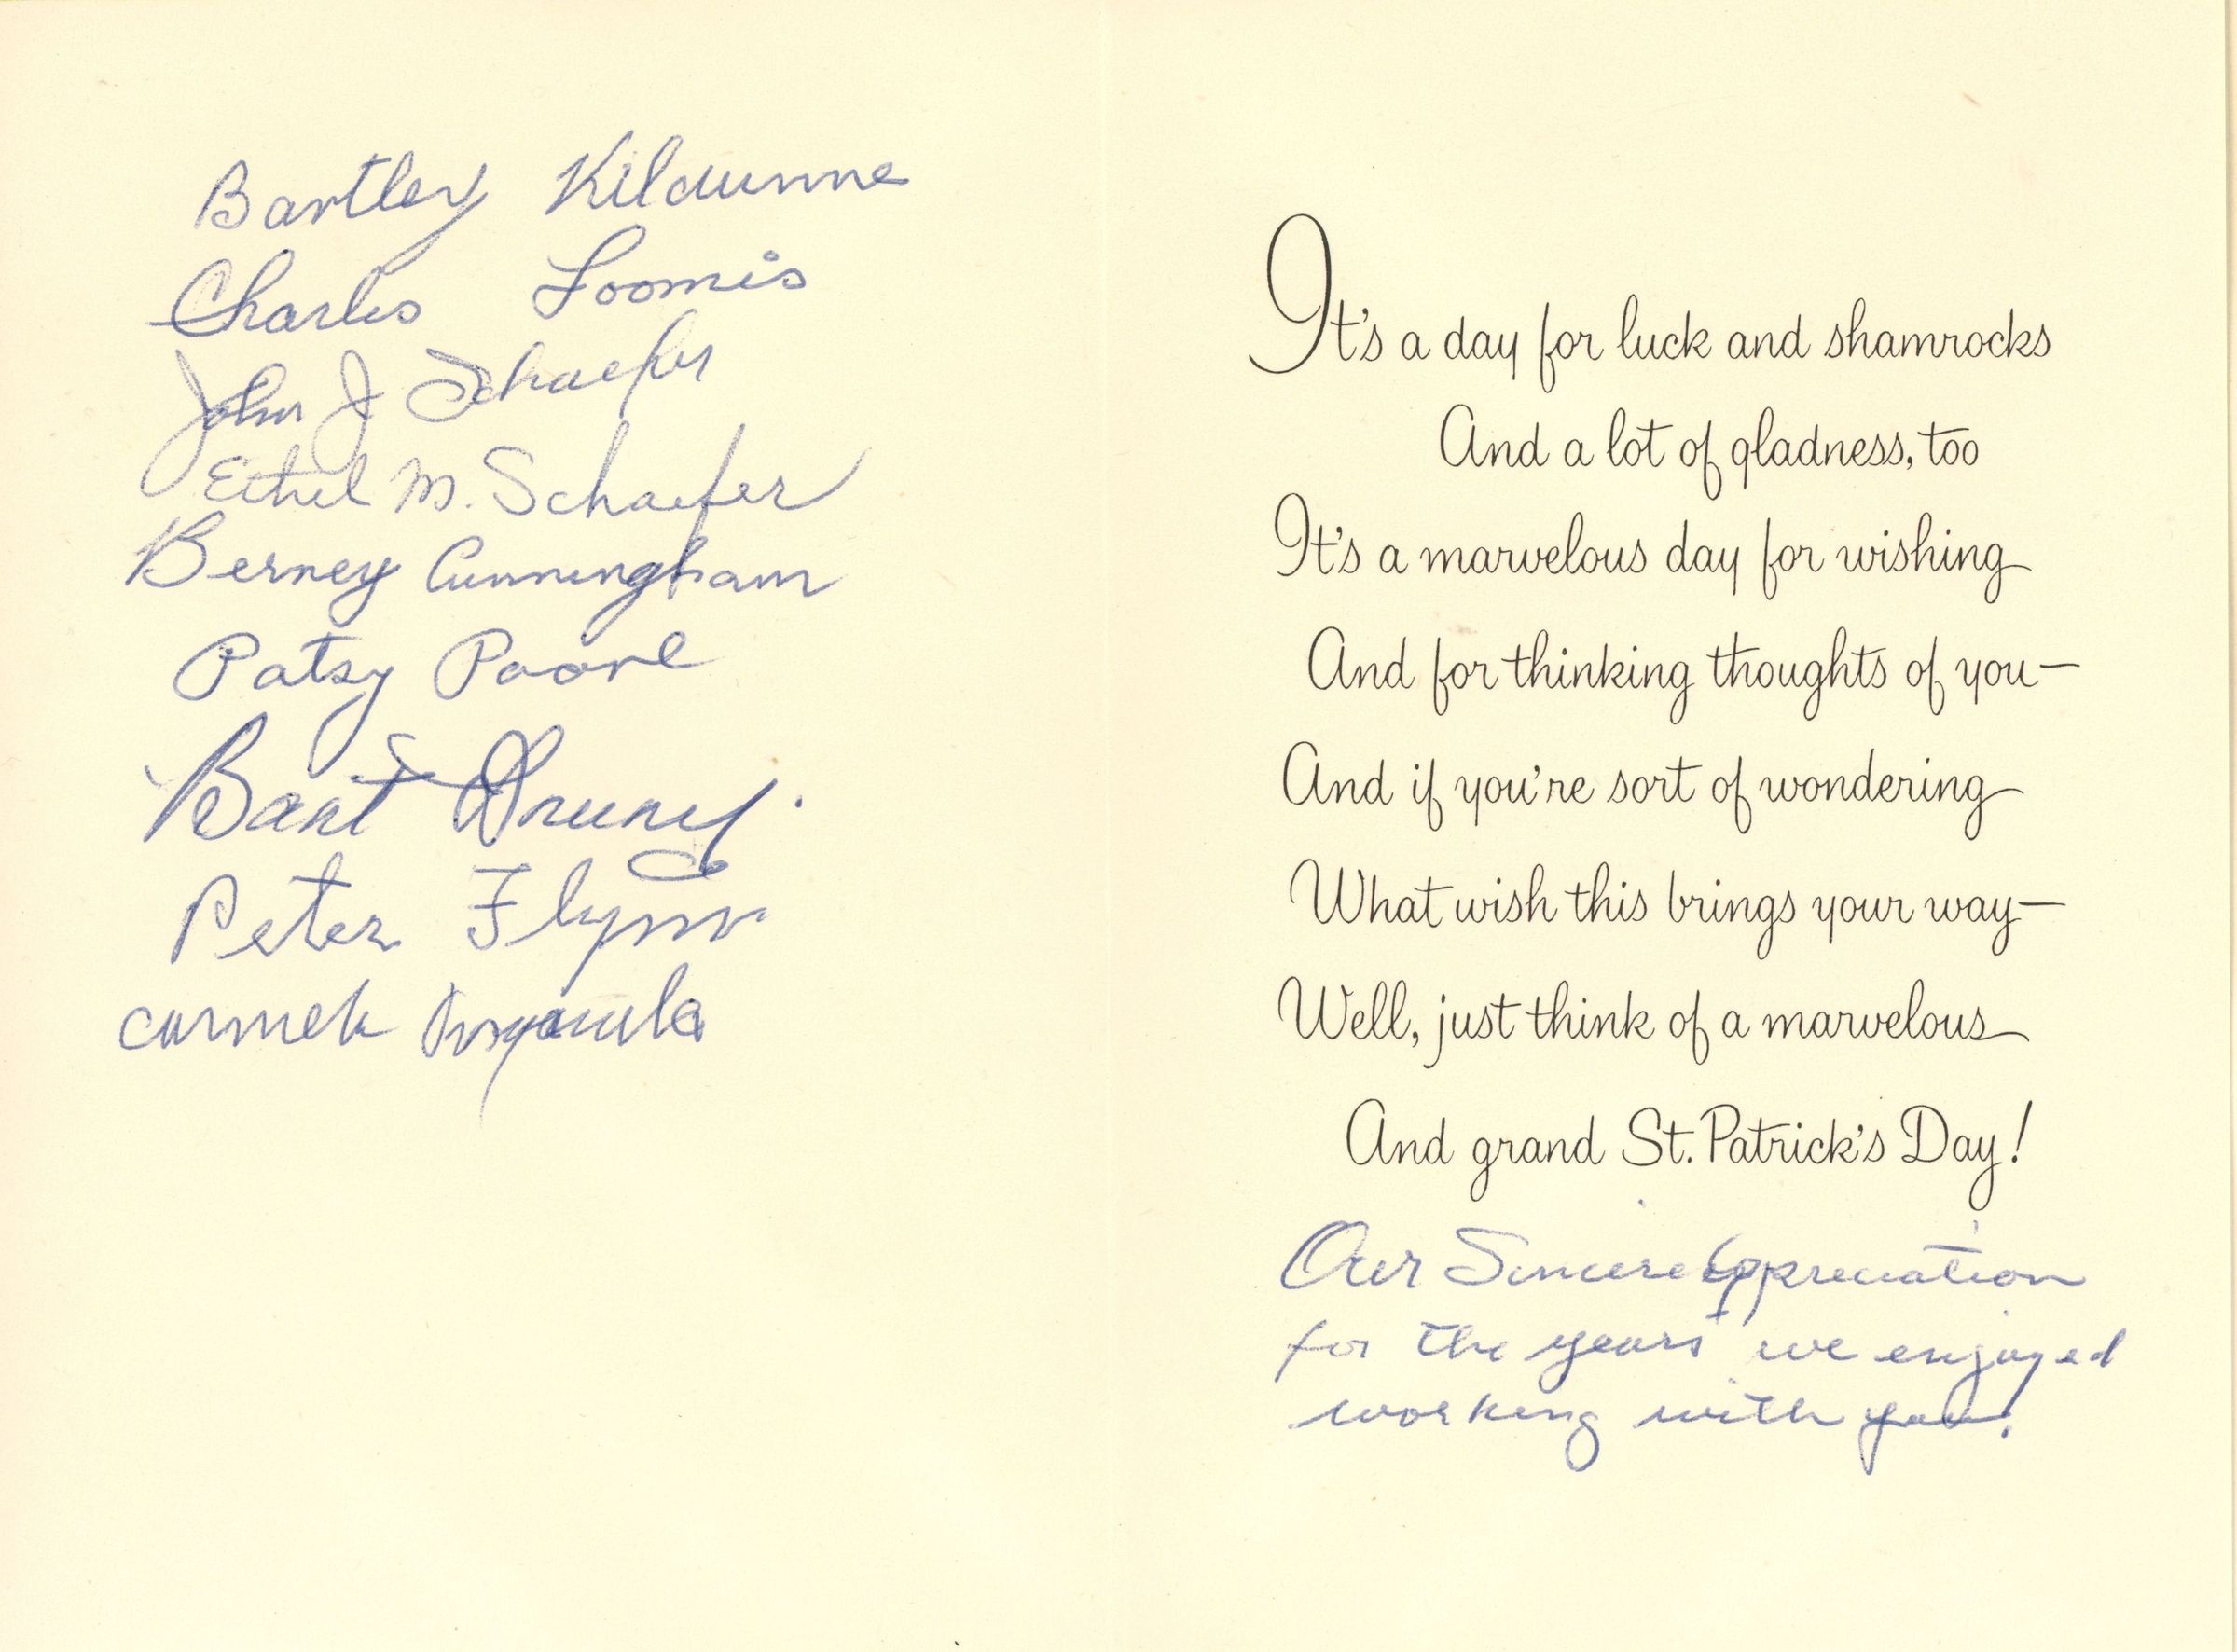 Bartley Kildunne
Charles Loomis
John J Schaefer
Ethel M. Schaefer
Berney Cunningham
Patsy Paone
Bart
Peter Flynn
It's a day for luck and shamrocks
And a lot of gladness, too
It's a marvelous day for wishing
And for thinking thoughts of you—
And if you're sort of wondering
What wish this brings your way—
Well, just think of a marvelous
And grand St. Patrick's Day!
Our Sincere Appreciation
for the years we enjoyed
working with you.